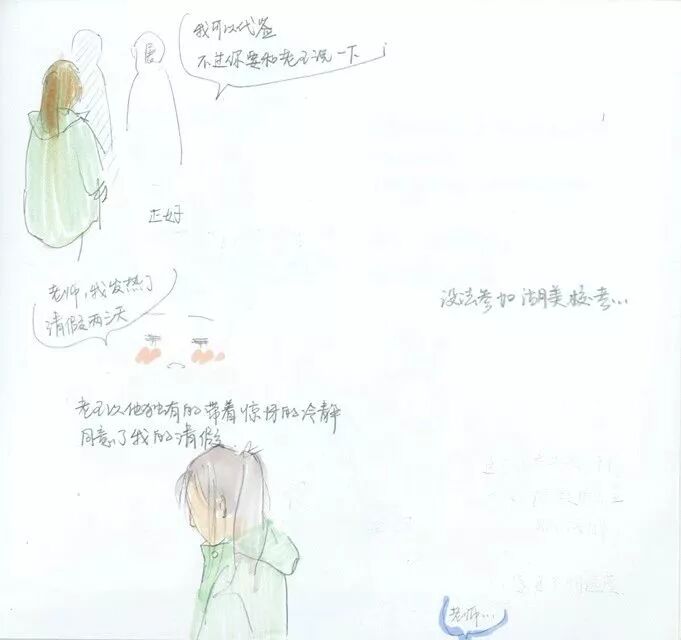 我可以代签
不过你要和老王说一下
正好
老师,我发热了
请假两三天
没法参加湖美校考...
老王以他独有的带着惊讶的冷静
同意了我的请假
老师...